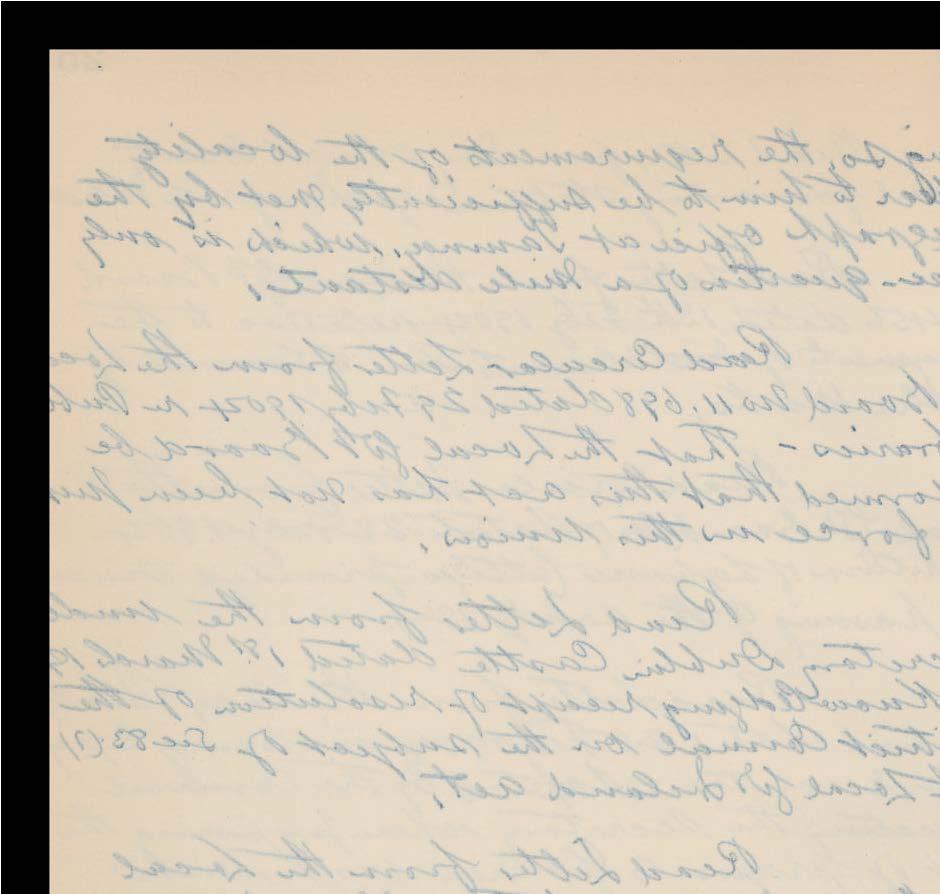 so, the requirements of the locality
to him to be sufficiently met by the
office at Tawny, which is only
quarters of a mile distant.
Read Circular Letter from the Loca
Board No 11,698 dated 29 Feby 1904 re Publ
raries - That the Local Govt Board be
formed that this act has not been put
force in this Union.
Read Letter from the Unde
cretary Dublin Castle dated 1st March 19
knowledging receipt of resolution of the
trict Council on the subject of Sec 83 (7)
Local Govt Ireland Act.
Read Letter from the Local